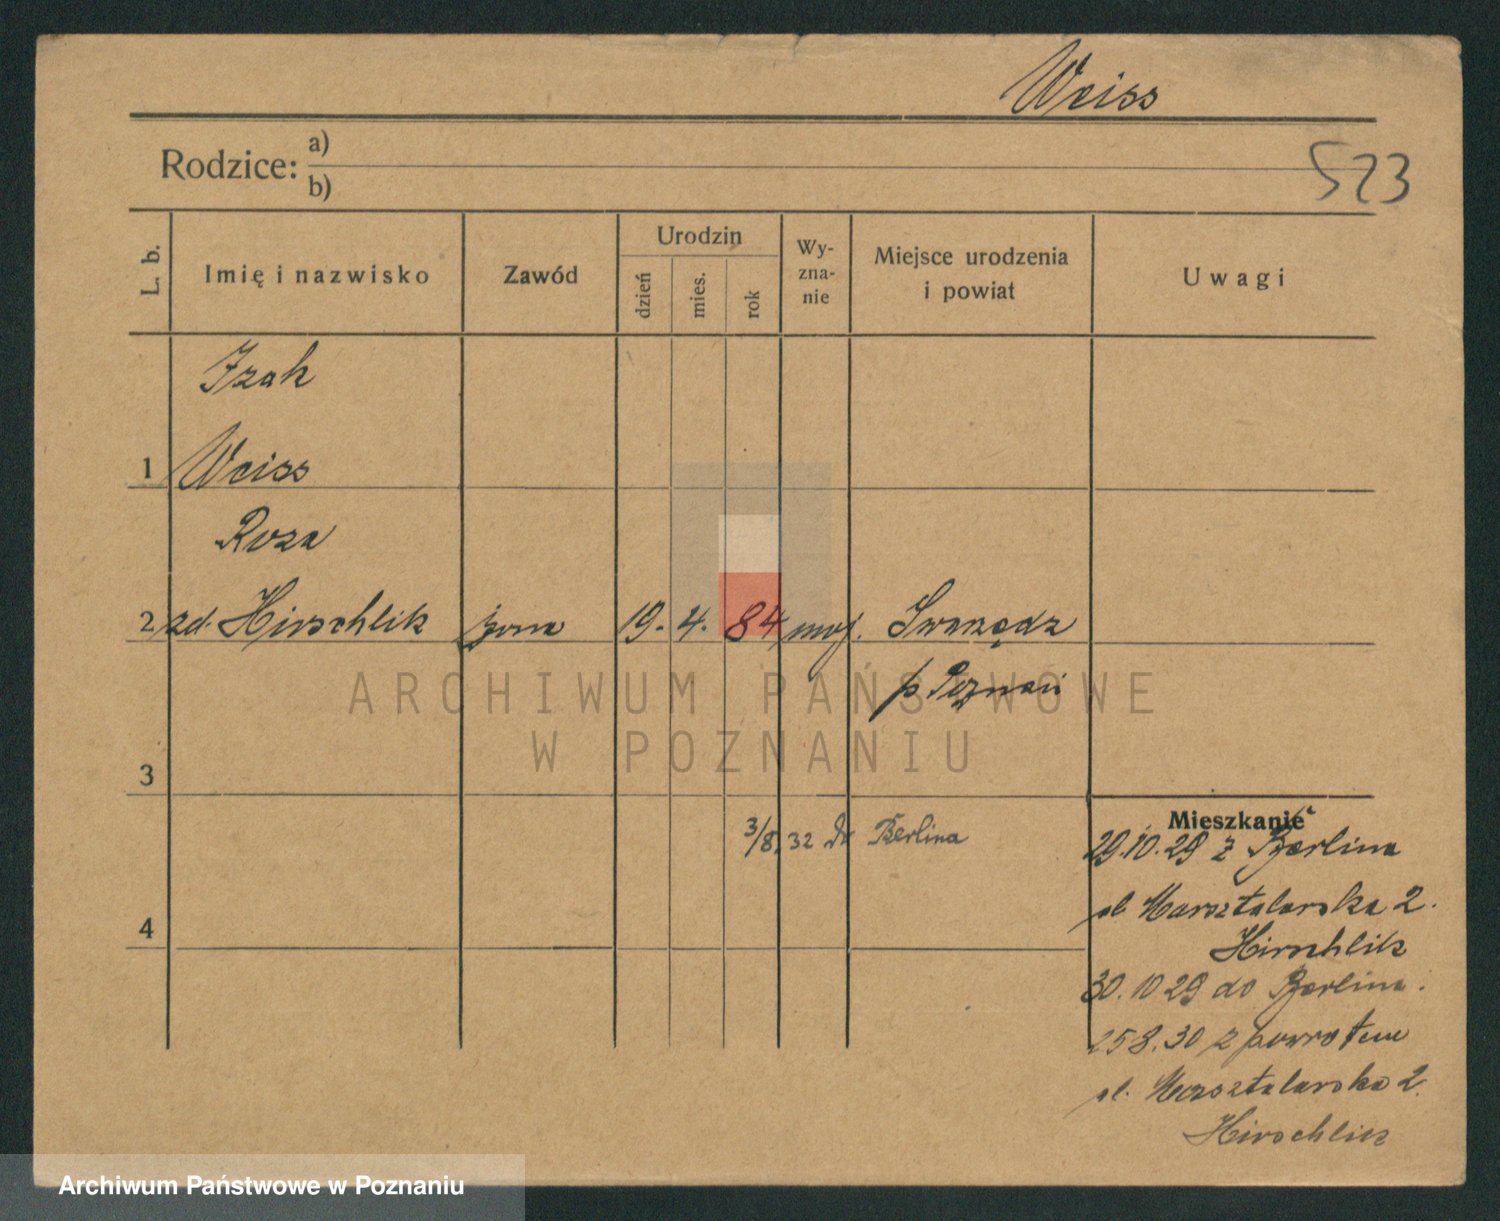 Weiss
Rodzice: a)
b)
523
L. b.
Imię i nazwisko
Zawód
Urodzin
dzień
mies.
rok
Wy-
zna-
nie
Miejsce urodzenia
i powiat
Uwagi
Izak
1 Weiss
Roza
2 zd. Hirschlik żona 19. 4. 84 moj. Swarzędz
p Poznań
ARCHIWUM PAŃSTWOWE
W POZNANIU
3
3/8.32 do Berlina
4
Mieszkanie
29.10.29 z Berlina
ul Marsztalarska 2.
Hirschlik
30.10 29 do Berlina.
25 8.30 z powrotem
ul. Marsztalarska 2.
Hirschlik
Archiwum Państwowe w Poznaniu